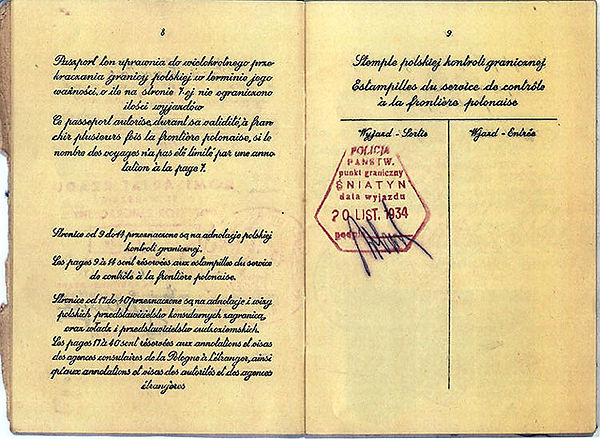 8
Paszport ten uprawnia do wielokrotnego prze-
kraczania granicy polskiej w terminie jego
ważności, o ile na stronie 7-ej nie ograniczono
ilości wyjazdów
Ce passeport autorise, durant sa validité, à fran-
chir plusieurs fois la frontière polonaise, si le
nombre des voyages n'a pas été limité par une anno-
tation à la page 7.
Stronice od 9 do 14 przeznaczone są na adnotacje polskiej
kontroli granicznej.
Les pages 9 à 14 sont réservées aux estampilles du service
de contrôle à la frontière polonaise.
Stronice od 17 do 40 przeznaczone są na adnotacje i wizy
polskich przedstawicielstw konsularnych zagranicą,
oraz władz i przedstawicielstw cudzoziemskich.
Les pages 17 à 40 sont réservées aux annotations et visas
des agences consulaires de la Pologne à l'étranger, ainsi
qu'aux annotations et visas des autorités et des agences
étrangères
9
Stemple polskiej kontroli granicznej
Estampilles du service de contrôle
à la frontière polonaise
Wyjazd - Sortie
Wjazd - Entrée
POLICJA
PAŃSTW.
punkt graniczny
ŚNIATYN
data wyjazdu
20 LIST. 1934